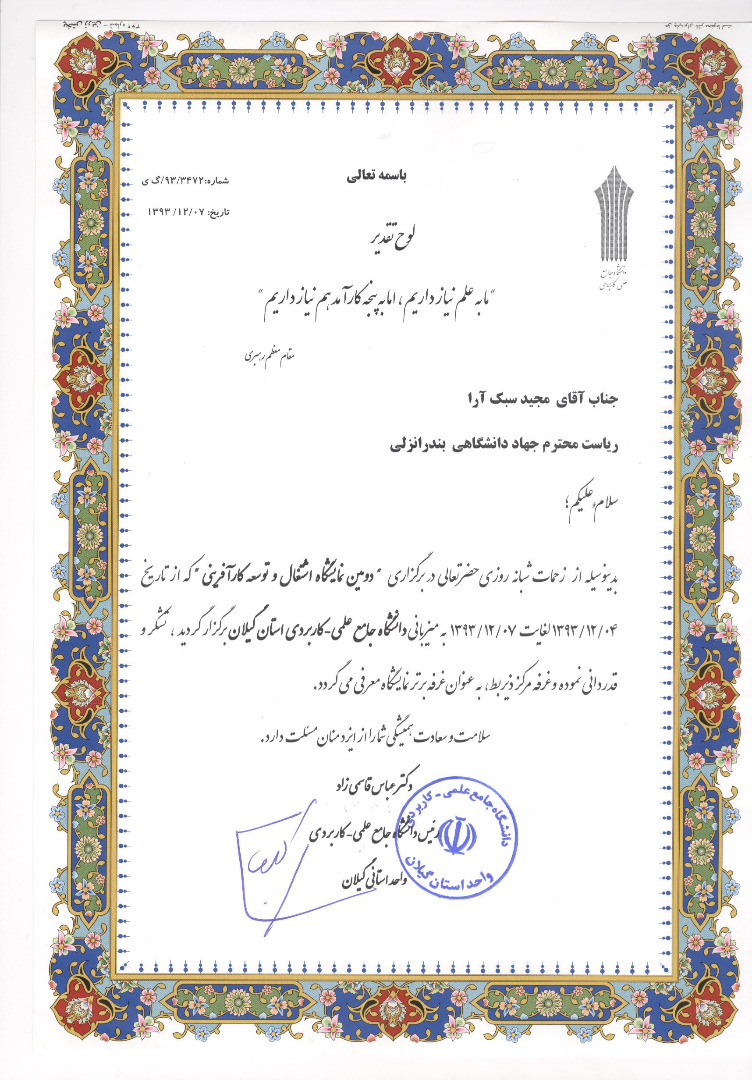 باسمه تعالی
شماره:۹۳/۳۴۷۲/گ ی
تاریخ: ۱۳۹۳/۱۲/۰۷
دانشگاه جامع
علمی کاربردی
لوح تقدیر
"ما به علم نیاز داریم ، اما به پنجه کارآمد هم نیاز داریم"
مقام معظم رهبری
جناب آقای مجید سبک آرا
ریاست محترم جهاد دانشگاهی بندرانزلی
سلام علیکم ؛
بدینوسیله از زحمات شبانه روزی حضرتعالی در برگزاری "دومین نمایشگاه اشتغال و توسعه کارآفرینی" که از تاریخ
۱۳۹۳/۱۲/۰۴ لغایت ۱۳۹۳/۱۲/۰۷ به میزبانی دانشگاه جامع علمی-کاربردی استان گیلان برگزار گردید ، تشکر و
قدردانی نموده و غرفه مرکز ذیربط، به عنوان غرفه برتر نمایشگاه معرفی می گردد.
سلامت و سعادت همیشگی شما را از ایزد منان مسئلت دارد.
دکتر عباس قاسمی زاد
رئیس دانشگاه جامع علمی-کاربردی
واحد استانی گیلان
دانشگاه جامع علمی - کاربردی
واحد استان گیلان